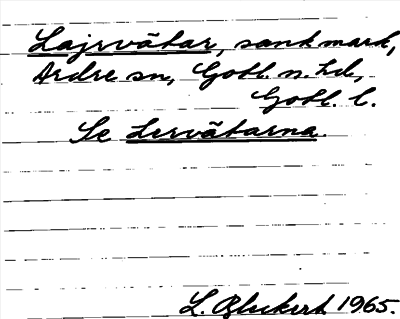 Lajrvätar, sank mark,
Ardre sn, Gotl. n. hd,
Gotl. l.
Se Lervätarna.
L. Bleckert 1965.